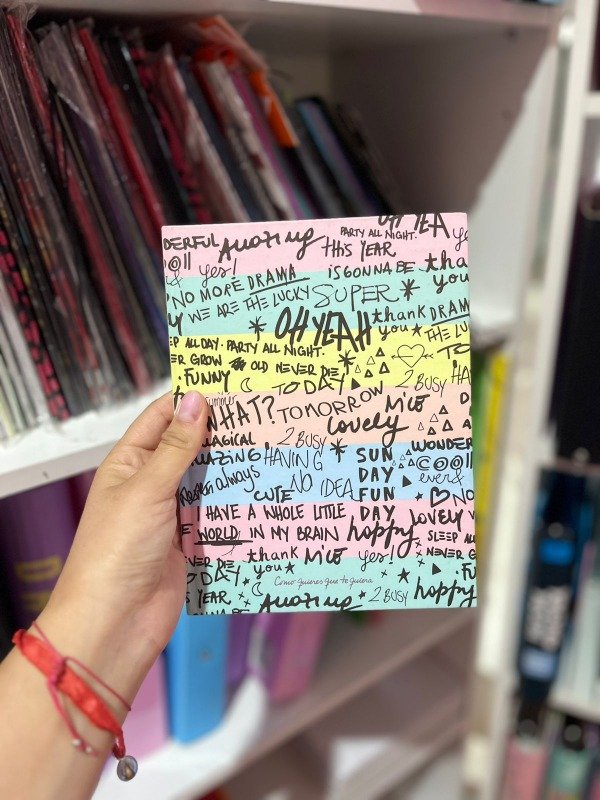 OH YEA
DERFUL Amazing PARTY ALL NIGHT. Ye
THIS YEAR
COOll yes! IS GONNA BE tha
NO MORE DRAMA you
WE ARE THE LUCKY SUPER
OH YEAH thank DRAM
you THE LU
EP ALL DAY · PARTY ALL NIGHT. TO
ER GROW OLD NEVER DIE
FUNNY TODAY 2 BUSY HA
WHAT? TOMORROW NICE
lovely
MAGICAL 2 BUSY WONDER
AMAZING! HAVING SUN COOll
always NO IDEA DAY ever
CUTE FUN NO
I HAVE A WHOLE LITTLE DAY lovely
WORLD IN MY BRAIN happy SLEEP ALL
EVER DIE thank NICE yes! NEVER G
TODAY you FU
Como quieres que te quiera
S YEAR Amazing 2 BUSY happy